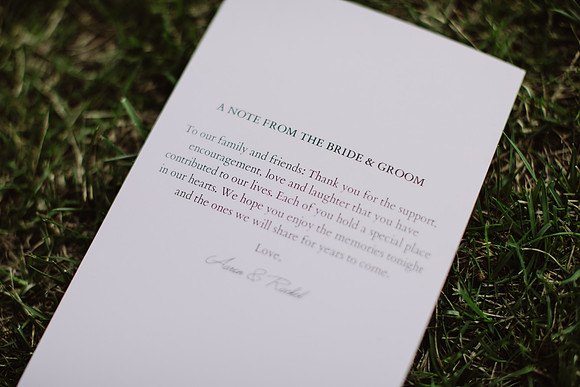 A NOTE FROM THE BRIDE & GROOM
To our family and friends: Thank you for the support,
encouragement, love and laughter that you have
contributed to our lives. Each of you hold a special place
in our hearts. We hope you enjoy the memories tonight
and the ones we will share for years to come.
Love,
Aaron & Rachel